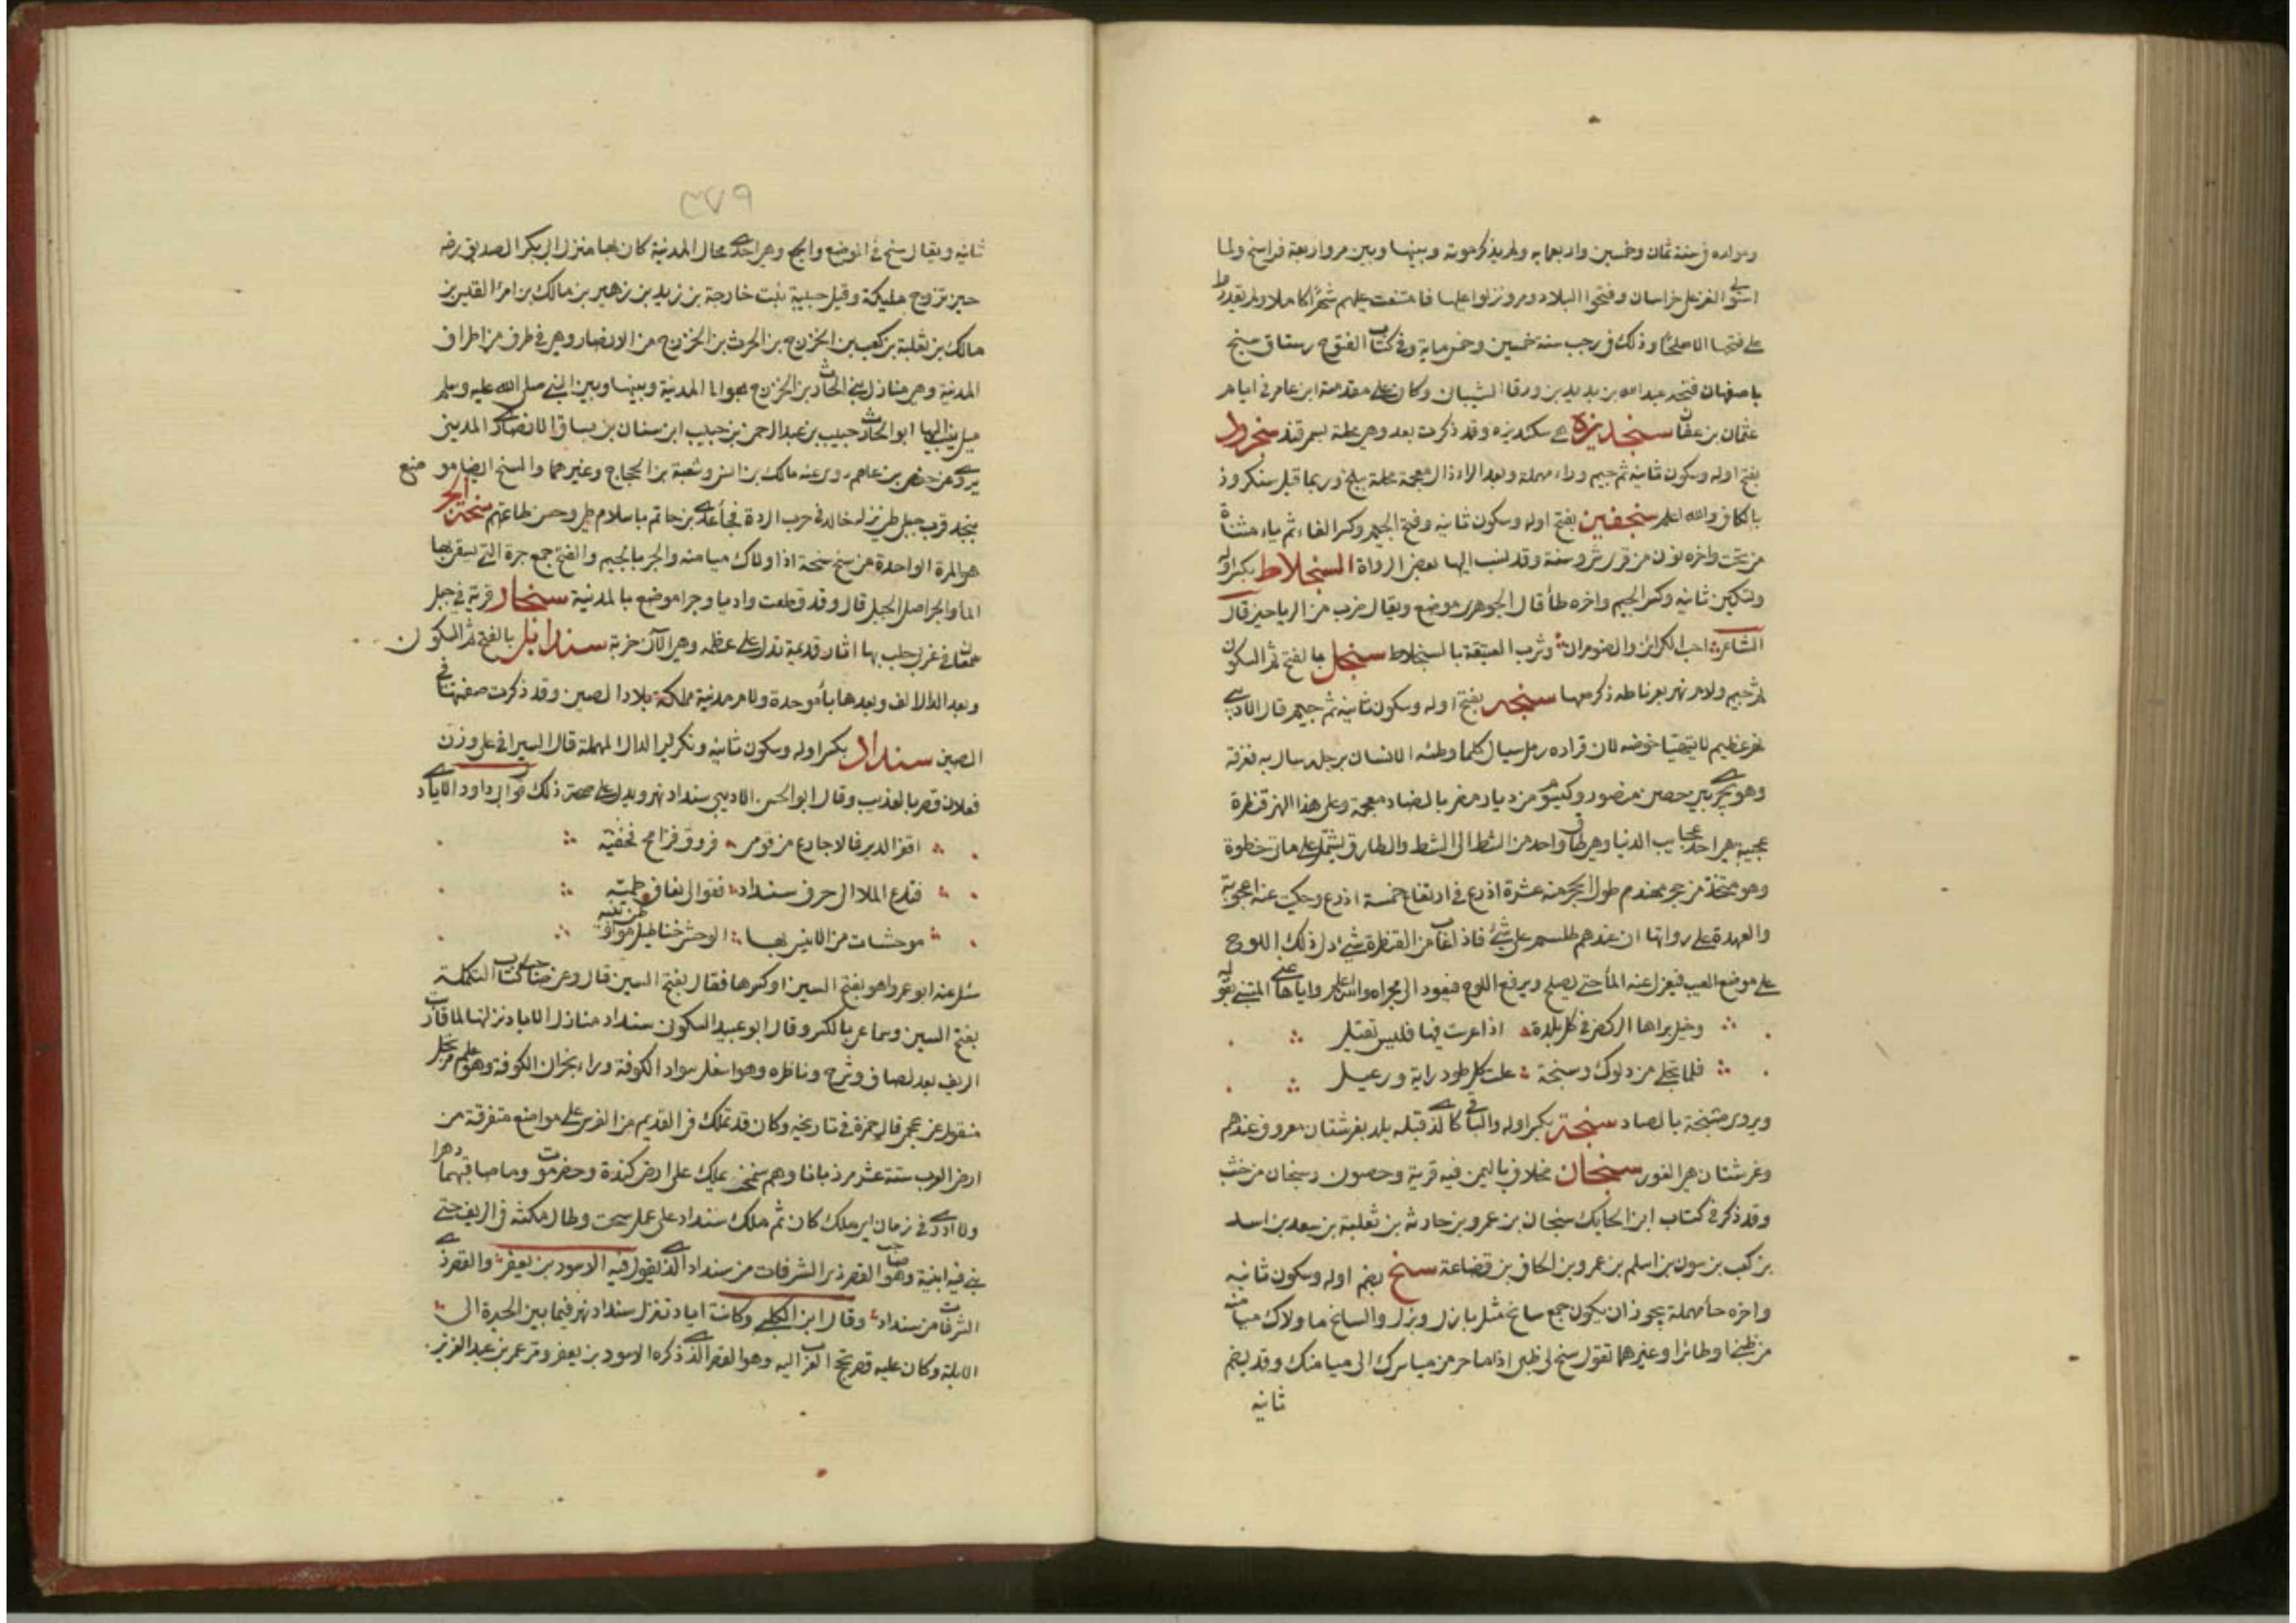 ومولده في سنة ثمان وخمسين واربعمايه ولم يذكر موته وبينها وبين مرو اربعة فراسخ ولما
استولى الغز على خراسان وفتحوا البلاد ومرو نزلوا عليها فامتنعت عليهم شهرًا كاملا ولم يقدروا
على فتحها الا صلحًا وذلك في رجب سنة خمسين وخمس ماية وفي كتاب الفتوح رستاق سنج
باصفهان فتحه عبد الله بن بديل بن ورقا الشيبان وكان على مقدمة ابن عامر في ايام
عثمان بن عفان سنجديزة هي سكنديزه وقد ذكرت بعد وهي محلة بسمرقند سنجروذ
بفتح اوله وسكون ثانيه ثم جيم وراء مهملة وبعد الراء ذال معجمة محلة ببلخ وربما قيل سنكروذ
بالكاف والله اعلم سنجفين بفتح اوله وسكون ثانيه وفتح الجيم وكسر الفاء ثم ياء مثناة
من تحت واخره نون من قرى شروسنة وقد نسب اليها بعض الرواة السنجلاط بكسر اوله
وتسكين ثانيه وكسر الجيم واخره طأ قال الجوهري موضع ويقال ضرب من الرياحين قال
الشاعر احب الكراين والضومران وشرب العتيقة بالسنجلاط سنجل بالفتح ثم السكون
ثم جيم ولام نهر بغرناطه ذكر معها سنجه بفتح اوله وسكون ثانيه ثم جيم قال الاديبي
نهر عظيم لا يتهيا خوضه لان قراره رمل سيال كلما وطئه الانسان برجله سال به فغرقه
وهو يجري بين حصن منصور وكيسوم من ديار مضر بالضاد معجمة وعلى هذا النهر قنطرة
عجيبة هي احد عجايب الدنيا وهي طاق واحد من الشط الى الشط والطاق يشتمل على مائتي خطوة
وهو متخذ من حجر مهندم طول الحجر منه عشرة اذرع في ارتفاع خمسة اذرع وحكيت عنه اعجوبة
والعهدة على رواتها ان عندهم طلسم على شئ فاذا غاب من القنطرة شئ ادلى ذلك اللوح
على موضع العيب فيعزل عنه المأ حتى يصلح ويرفع اللوح فيعود الى مجراه والله اعلم واياها عنى المتنبي بقوله
وخيل براها الركض في كل بلدة اذا عرست فيها فليس تقيل
فلما تجلى من دلوك وسنجة علت كل طود راية ورعيل
ويروى صنجة بالصاد سنجة بكسر اوله والباقي كالذي قبله بلد بغرشستان معروف عندهم
وغرشستان هي الغور سنجان مخلاف باليمن فيه قرية وحصون وسنجان من جنب
وقد ذكر في كتاب ابن الحايك سنجان بن عمرو بن حارثه بن ثعلبة بن سعد بن اسد
بن كعب بن سون بن اسلم بن عمرو بن الحاف بن قضاعة سنح بضم اوله وسكون ثانيه
واخره حأ مهملة يجوز ان يكون جمع سانح مثل بازل وبزل والسانح ما ولاك ميامنه
من ظبي او طائر او غيرهما تقول سنح لي ظبي اذا ما مر من مياسرك الى ميامنك وقد يضم
ثانيه
٣٧٩
ثانيه ويقال سنح في الموضع والجمع وهي احدى محال المدنية كان بها منزل ابي بكر الصديق رضه
حين تزوج مليكة وقيل حبيبة بنت خارجة بن زيد بن زهير بن مالك بن امرأ القيس بن
مالك بن ثعلبة بن كعب بن الخزرج بن الحرث بن الخزرج من الانصار وهي في طرف من اطراف
المدنية وهي منازل بني الحارث بن الخزرج بعوالى المدنية وبينها وبين النبي صلى الله عليه وسلم
ميل ينسب اليها ابو الحارث حبيب بن عبد الرحمن بن حبيب ابن سنان بن يساق الانصاري المديني
يروي عن حفص بن عاصم روى عنه مالك بن انس وشعبة بن الحجاج وغيرهما والسنح ايضا موضع
بنجد قرب جبل طي نزله خالد في حرب الردة فجأ عدي بن حاتم باسلام طي وحسن طاعتهم سنحة الجر
هو المرة الواحدة من سنح سنحة اذا اولاك ميامنه والجر بالجيم والفتح جمع جرة التي يستقى بها
المأ والجر اصل الجبل قال وقد قطعت واديا وجرا موضع بالمدنية سنحار قرية في جبل
سمعان في غربي حلب بها اثار قديمة تدل على عظم وهي الآن خربة سندابل بالفتح ثم السكون
وبعد الدال الالف وبعدها بأ موحدة ولام مدنية مملكة بلاد الصين وقد ذكرت صفتها في
الصين سنداد بكسر اوله وسكون ثانيه وتكرير الدال المهملة قال السيرافي على وزن
فعلان قصر بالعذيب وقال ابو الحسن الاديبي سنداد نهر ويدل على صحة ذلك قول ابي داود الايادي
اقفر الدير فالاجارع من قومي فروق فرامح فخفيه
فتلاع الملا الى جرف سنداد فقو الى نعاف طميه
موحشات من الانيس بها الوحش خناطيل موطن نفيه
سئل عنه ابو عمرو اهو بفتح السين او كسرها فقال بفتح السين قال وعن صاحب كتاب التكملة
بفتح السين وسماعي بالكسر وقال ابو عبيد السكوني سنداد منازل الاياد نزلتها لما قاربت
الريف بعد لصاف وشرج وناظره وهو اسفل سواد الكوفة وراء نجران الكوفة وهو علم مرتجل
منقول عن عجمي قال حمزة في تاريخه وكان قد تملك في القديم من الفرس على مواضع متفرقة من
ارض العرب ستة عشر مرزبانا وهم سخت يملك على ارض كندة وحضرموت وما صاقبهما دهرا
ولا ادري في زمان اي ملك كان ثم ملك سنداد على عمل سخت وطال مكثه في الريف حتى
بنى فيه ابنية وهو صاحب القصر ذى الشرفات من سنداد الذي يقول فيه الاسود بن يعفر والقصر ذي
الشرفات من سنداد وقال ابن الكلبي وكانت اياد تنزل سنداد نهر فيما بين الحيرة الى
الابلة وكان عليه قصر تحج العرب اليه وهو القصر الذي ذكره الاسود بن يعفر ومر عمر بن عبد العزيز